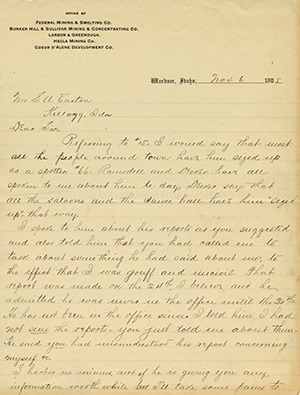 OFFICE OF
FEDERAL MINING & SMELTING CO.
BUNKER HILL & SULLIVAN MINING & CONCENTRATING CO.
LARSON & GREENOUGH.
HECLA MINING CO.
COEUR D'ALENE DEVELOPMENT CO.
Wardner, Idaho, Nov. 6 1905
Mr S. A. Easton
Kellogg, Ida
Dear Sir:
Referring to "15" I would say that most
all the people around town have him sized up
as a spotter "66" and have all
spoken to me about him to day. say that
all the saloons and the dance hall have him "sized
up" that way.
I spoke to him about his reports as you suggested
and also told him that you had called me to
task about something he had said about me, to
the effect that I was gruff and uncivil. That
report was made on the 28th I believe and he
admitted he was never in the office until the 30th.
He has not been in the office since. I told him I had
not seen the reports, you just told me about them.
He said you had misunderstood his report concerning
myself &c.
I harbor no animus and if he is giving you any
information worth while I'll take some pains to